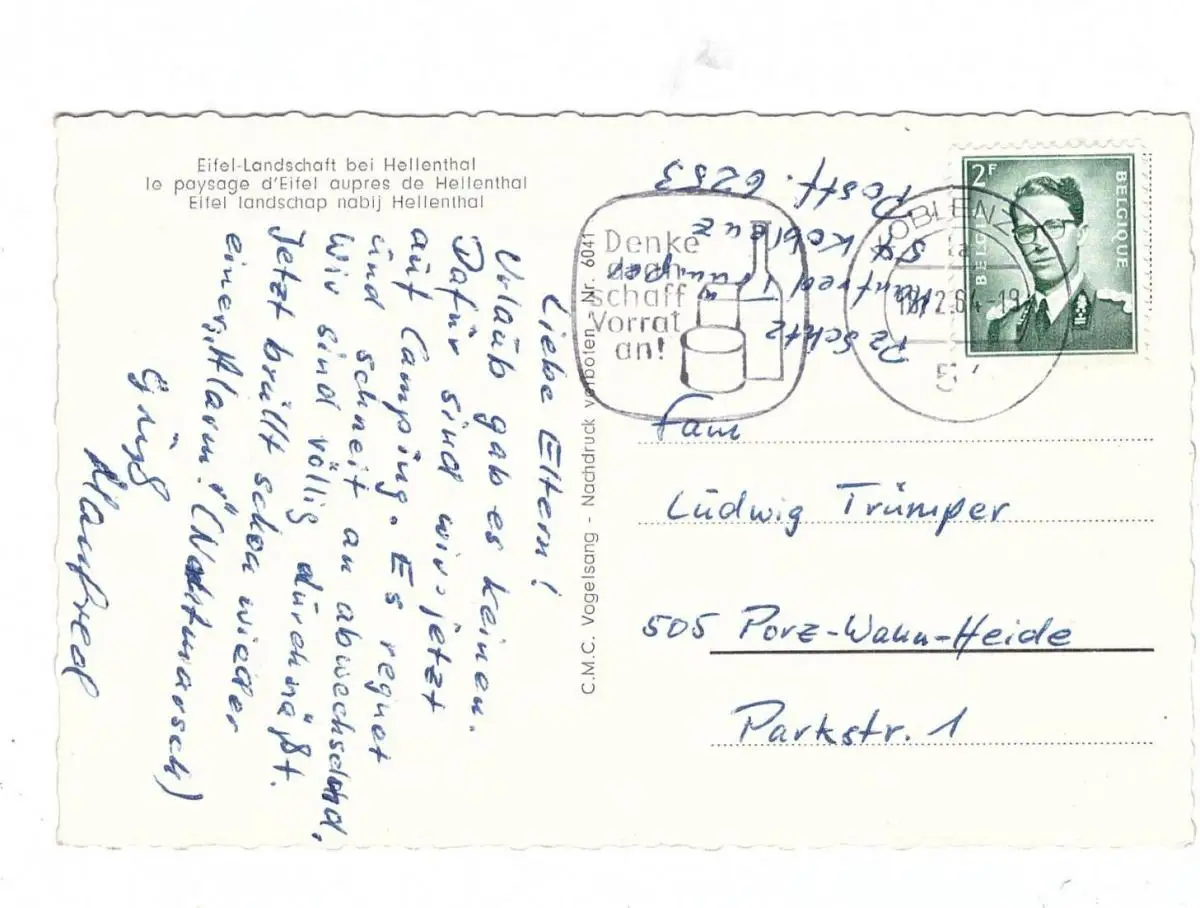 Eifel-Landschaft bei Hellenthal
le paysage d'Eifel aupres de Hellenthal
Eifel landschap nabij Hellenthal
Liebe Eltern!
Urlaub gab es keinen.
Dafür sind wir jetzt
auf Camping. Es regnet
und schneit an abwechselnd,
Wir sind völlig durchnäßt.
Jetzt brüllt schon wieder
einer „Alarm!" (Nachtmarsch)
Gruß
Manfred
C.M.C. Vogelsang - Nachdruck verboten - Nr. 6041
Pz Schtz
Manfred Trümper
54 Koblenz
Postf. 6253
Denke
dran
schaff
Vorrat
an!
KOBLENZ
2F
BELGIË
BELGIQUE
Fam
Ludwig Trümper
505 Porz-Wahn-Heide
Parkstr. 1